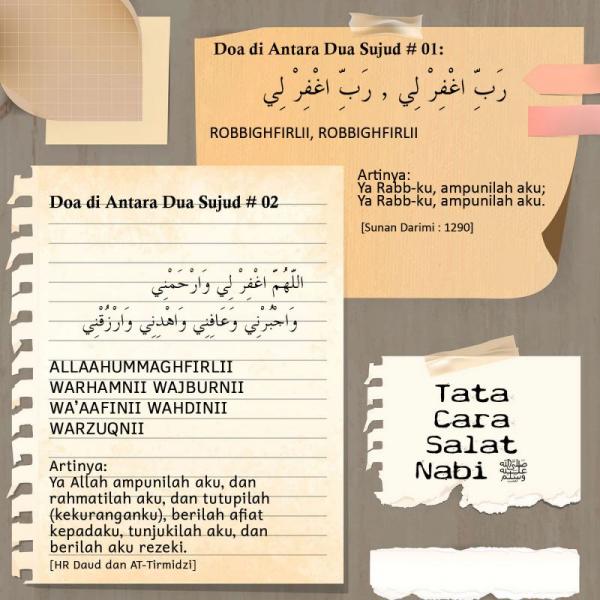 Doa di Antara Dua Sujud # 01:
رَبِّ اغْفِرْ لِي , رَبِّ اغْفِرْ لِي
ROBBIGHFIRLII, ROBBIGHFIRLII
Artinya:
Ya Rabb-ku, ampunilah aku;
Ya Rabb-ku, ampunilah aku.
[Sunan Darimi : 1290]
Doa di Antara Dua Sujud # 02
اللَّهُمَّ اغْفِرْ لِي وَارْحَمْنِي
وَاجْبُرْنِي وَعَافِنِي وَاهْدِنِي وَارْزُقْنِي
ALLAAHUMMAGHFIRLII
WARHAMNII WAJBURNII
WA'AAFINII WAHDINII
WARZUQNII
Artinya:
Ya Allah ampunilah aku, dan
rahmatilah aku, dan tutupilah
(kekuranganku), berilah afiat
kepadaku, tunjukilah aku, dan
berilah aku rezeki.
[HR Daud dan AT-Tirmidzi]
Tata
Cara
Salat
Nabi ﷺ